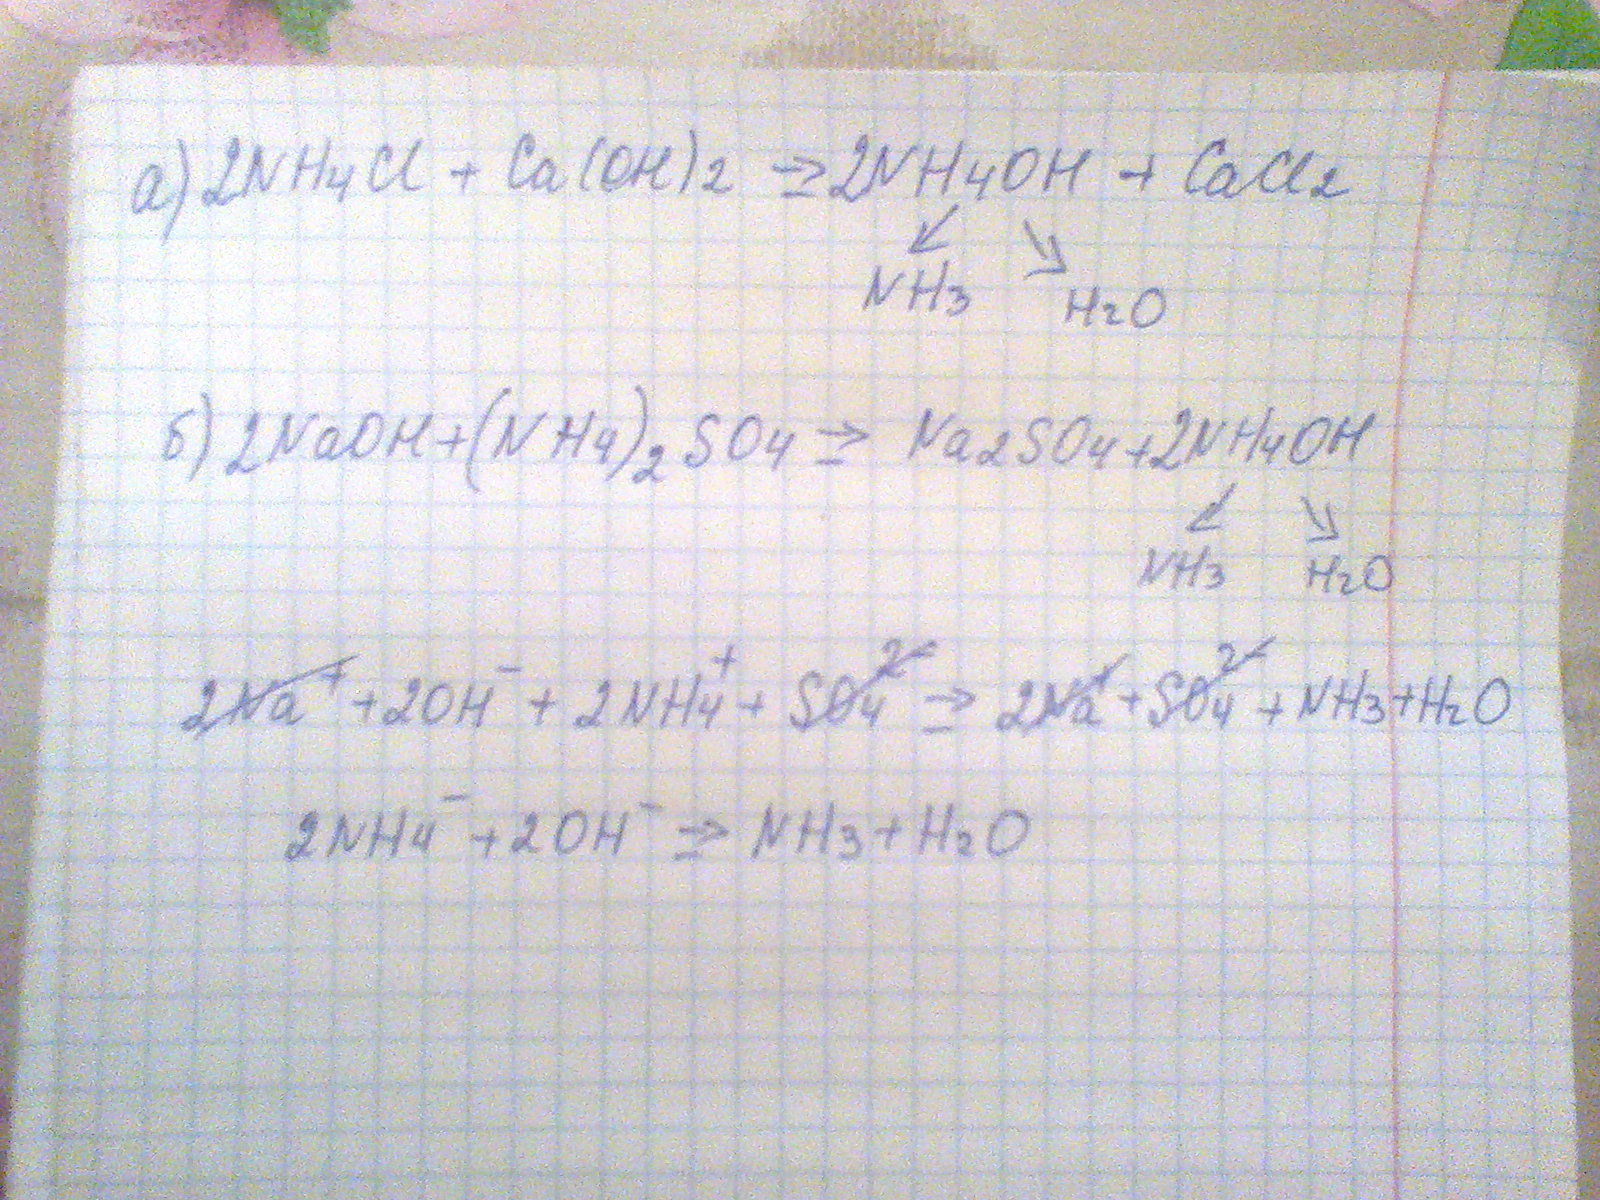 а) 2NH4Cl + Ca(OH)2 ⇒ 2NH4OH + CaCl2
↙ ↘
NH3 H2O
б) 2NaOH+(NH4)2SO4 ⇒ Na2SO4+2NH4OH
↙ ↘
NH3 H2O
2Na⁺ +2OH⁻ + 2NH4⁺ + SO4²⁻ ⇒ 2Na⁺ + SO4²⁻ + NH3+H2O
2NH4⁻ +2OH⁻ ⇒ NH3+H2O